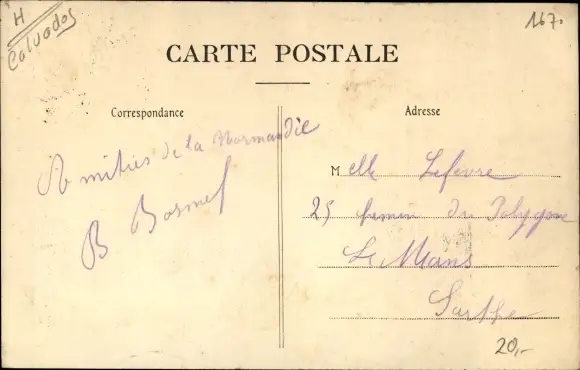 H
Calvados
167.
CARTE POSTALE
Correspondance
Adresse
Amitiés de la Normandie
B
Melle Lefevre
25 chemin du Polygone
Le Mans
Sarthe
20,-